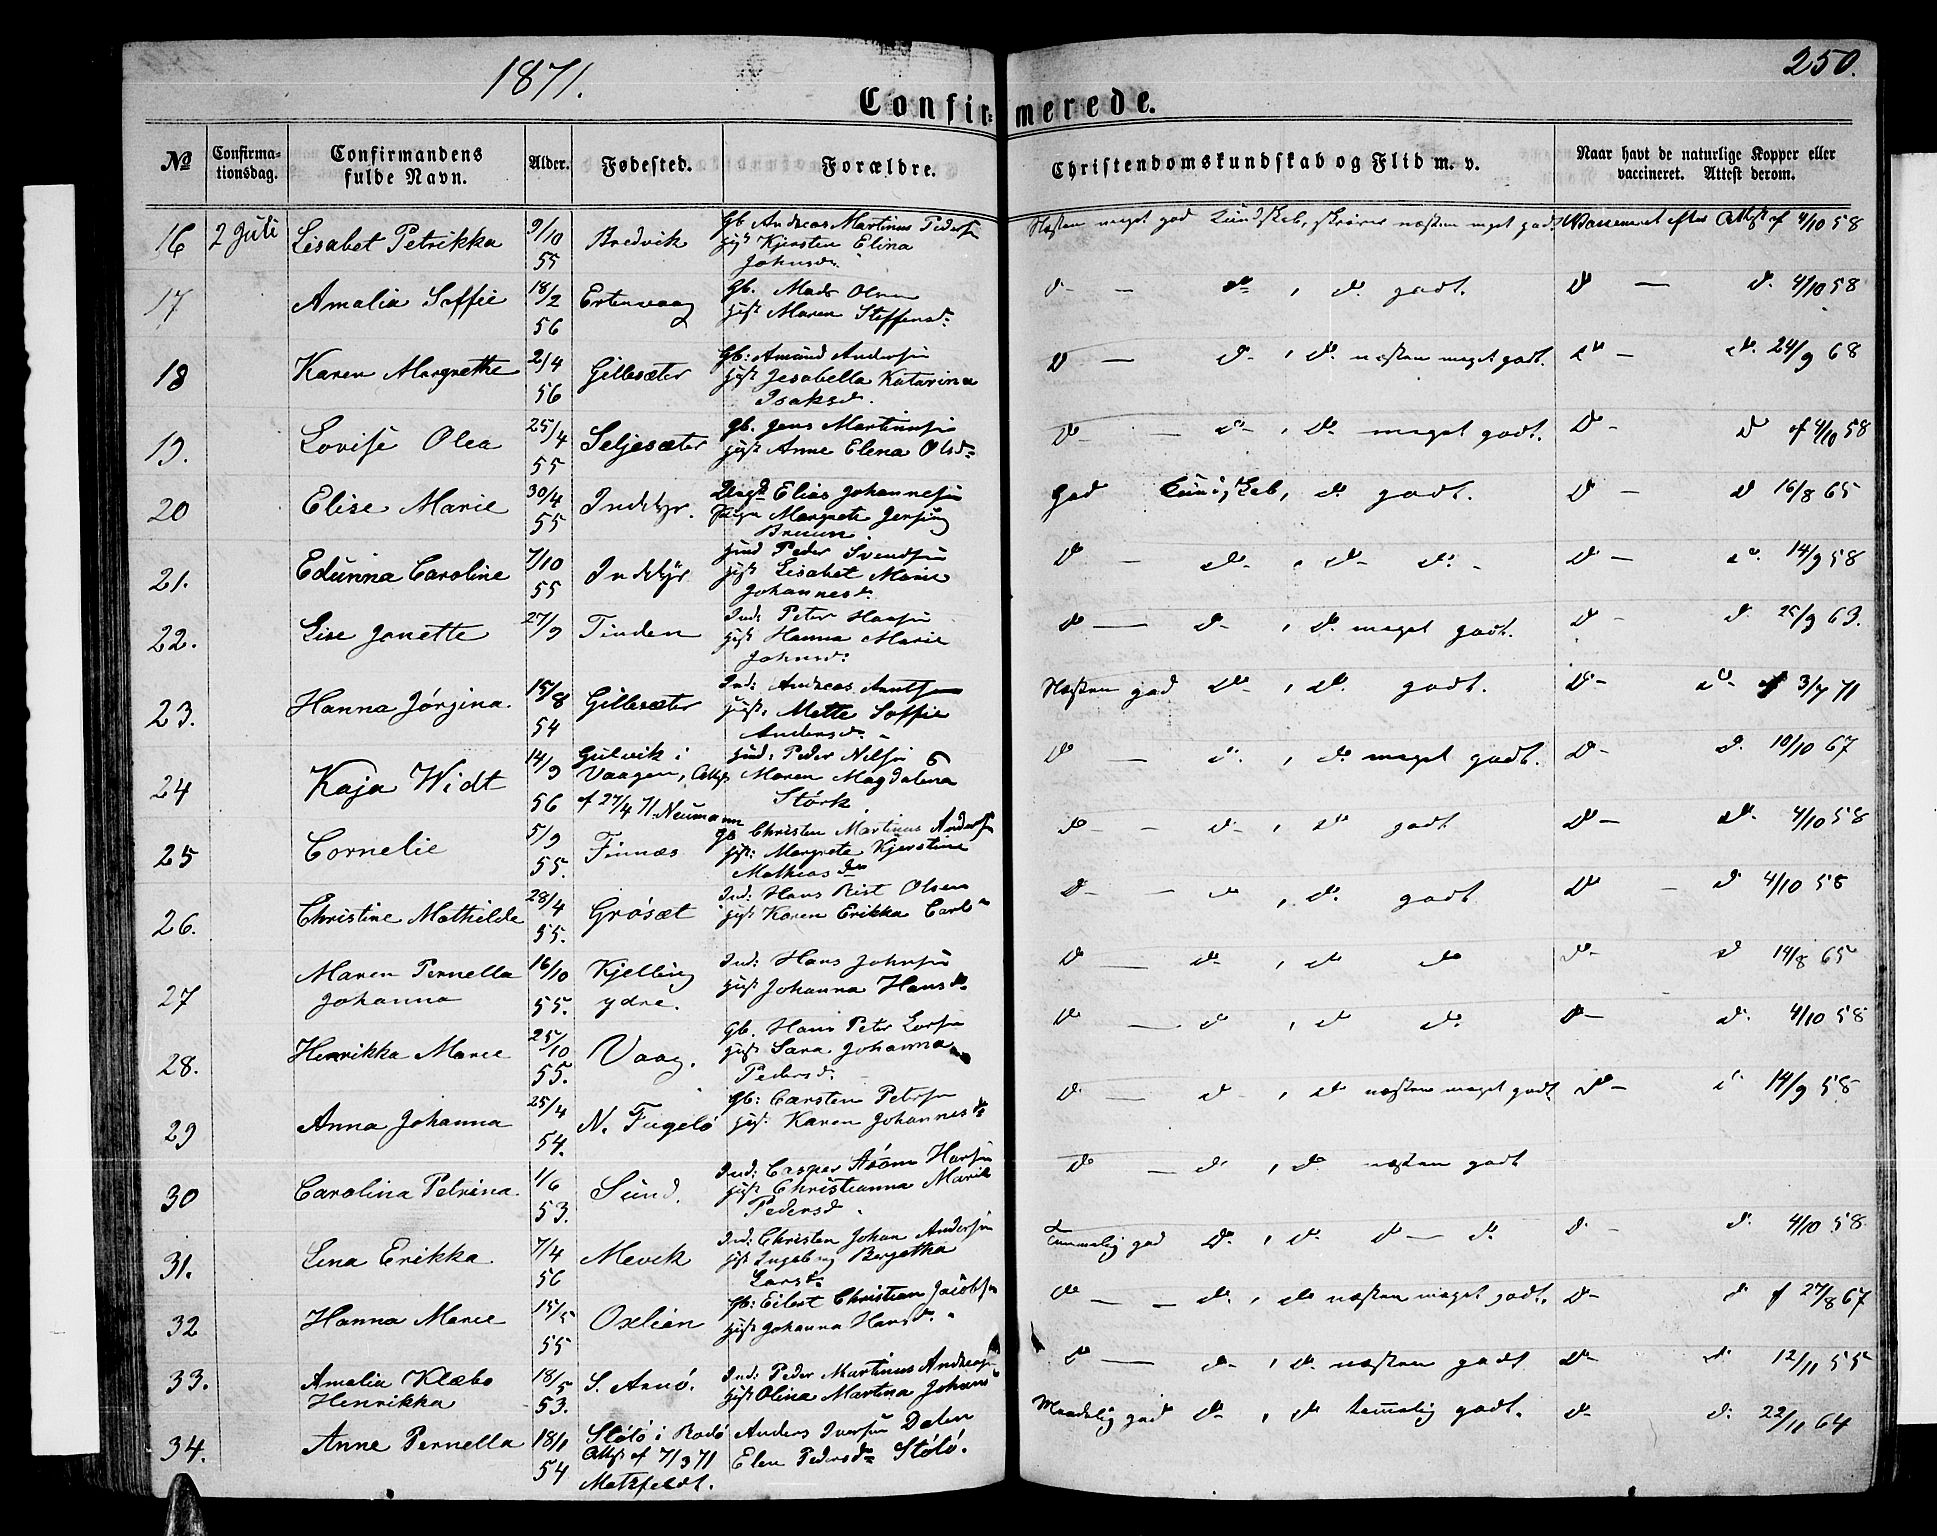 1871.
250.
Confirmerede.
№
Confirmationsdag.
Confirmandens fulde Navn.
Alder.
Fødested.
Forældre.
Christendomskundskab og Flid m. v.
Naar havt de naturlige Kopper eller vaccineret. Attest derom.
16 2 Juli Lisabet Petrikka 9/10 55 Bredvik Gb Andreas Martinus Peders. Kjersten Elina Johnsd. Næsten meget god Kundskab, næsten meget godt Vaccineret efter Attest af 4/10 58
17 Amalia Soffie 18/2 56 Ertenvaag Gb. Mads Olsen Maren Steffensd. d. — d. , d. godt. d. — d. 4/10 58
18 Karen Margrethe 2/4 56 Gillesæter Gb: Amund Anders. Jesabella Katarina Isaksd. d. — d. , d. næsten meget godt. d. — d. 24/9 68
19. Lovise Olea 25/4 55 Seljesæter Gb. Jens Martinus. Anne Elena Olsd. d. — d. , d. meget godt. d. — d. af 4/10 58
20 Elise Marie 30/4 55 Inddyr. Elias Johannes. Margrete Jensine Bruun God Kundskab, d. godt. d. — d. 16/8 65
21. Edunna Caroline 7/10 55 Inddyr Peder Svends. Lisabet Marie Johannesd. d. — d. , d. d. d. — d. 14/9 58
22. Lise Jonette 27/9 Tinden Ind: Peter Hans. Hanna Marie Johnsd. d. — d. , d. meget godt. d. — d. 25/9 63.
23. Hanna Jørgina. 15/8 54 Gillesæter Ind: Andreas Mette Soffie Andersd. Næsten god d. , d. godt. d. — d. af 3/7 71
24 Kaja Widt 14/9 56 Gulvik i Vaagen, Attest af 27/4 71. Neumann Peder Nils. Maren Magdalena Størk d. — d. , d. meget godt. d. — d. 10/10 67
25 Cornelie 5/9 55. Finnæs Gb Christen Martinus Anders. Margrete Kjerstine Mathiasd. d. — d. , d. godt d. — d. 4/10 58
26. Christine Mathilde 28/4 55. Grøsæt Ind: Hans Rist Olsen Karen Erikka Carlsd. d. — d. , d. godt d. — d. 4/10 58
27 Maren Pernella Johanna 16/10 55. Kjelling ydre. Ind: Hans Johns. Johanna Hansd. d. — d. , d. d. d. — d. 14/8 65
28. Henrikka Marie 25/10 55. Vaag. Gb. Hans Peter Lars. Sara Johanna Pedersd. d. — d. , d. d. d. — d. 4/10 58
29 Anna Johanna 25/4 54. N. Fugelø Gb: Carsten Peters. Karen Johannesd. d. — d. , d. næsten meget godt. d. — d. 14/9 58
30 Carolina Petrina. 1/6 53. Sund. Ind: Casper Hans. Christianna Marie Pedersd. d. — d. , d. næsten godt
31. Lina Erikka 7/4 56 Mevik Ind: Christen Johan Anders. Ingeborg Bergetha Larsd. Temmelig god d. , d. d. — d. d. — d. 4/10 58
32 Hanna Marie 15/5 55 Oxlien Gb: Eilert Christian Jacobs. Johanna Hansd. d. — d. , d. næsten meget godt. d. — d. af 27/8 67
33. Amalia Klæbo Henrikka 18/5 53. S. Arnø. Ind: Peder Martinus Andreas. Olina Martina Johansd. d. — d. , d. næsten godt d. — d. 12/11 55
34. Anne Pernella 18/1 54 Støtø i Rødø Attest af 7/3 71 Metzfeldt. Anders Ivers. Dalen Elen Pedersd. Støtø. Maadelig god d. , d. temelig godt. d. — d. 22/11 64